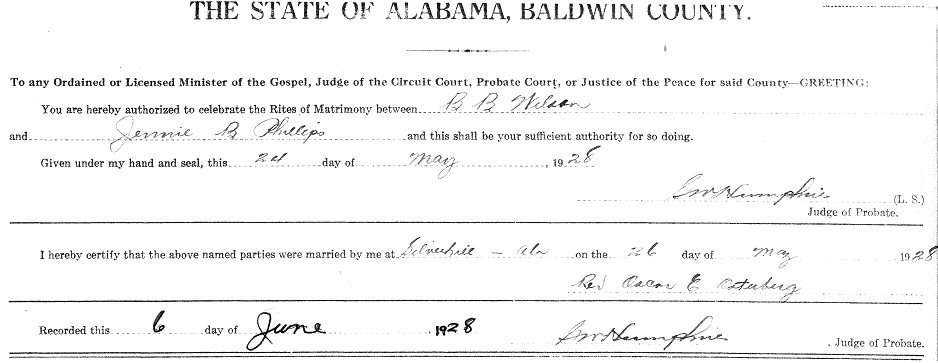 THE STATE OF ALABAMA, BALDWIN COUNTY.
To any Ordained or Licensed Minister of the Gospel, Judge of the Circuit Court, Probate Court, or Justice of the Peace for said County—GREETING:
You are hereby authorized to celebrate the Rites of Matrimony between B B Wilson
and Jennie B Phillips and this shall be your sufficient authority for so doing.
Given under my hand and seal, this day of May, 1928
GW Humphries (L. S.)
Judge of Probate.
I hereby certify that the above named parties were married by me at Silverhill - Ala on the 26 day of May 1928
Rev Oscar E Osterberg
Recorded this 6 day of June, 1928 GW Humphries, Judge of Probate.